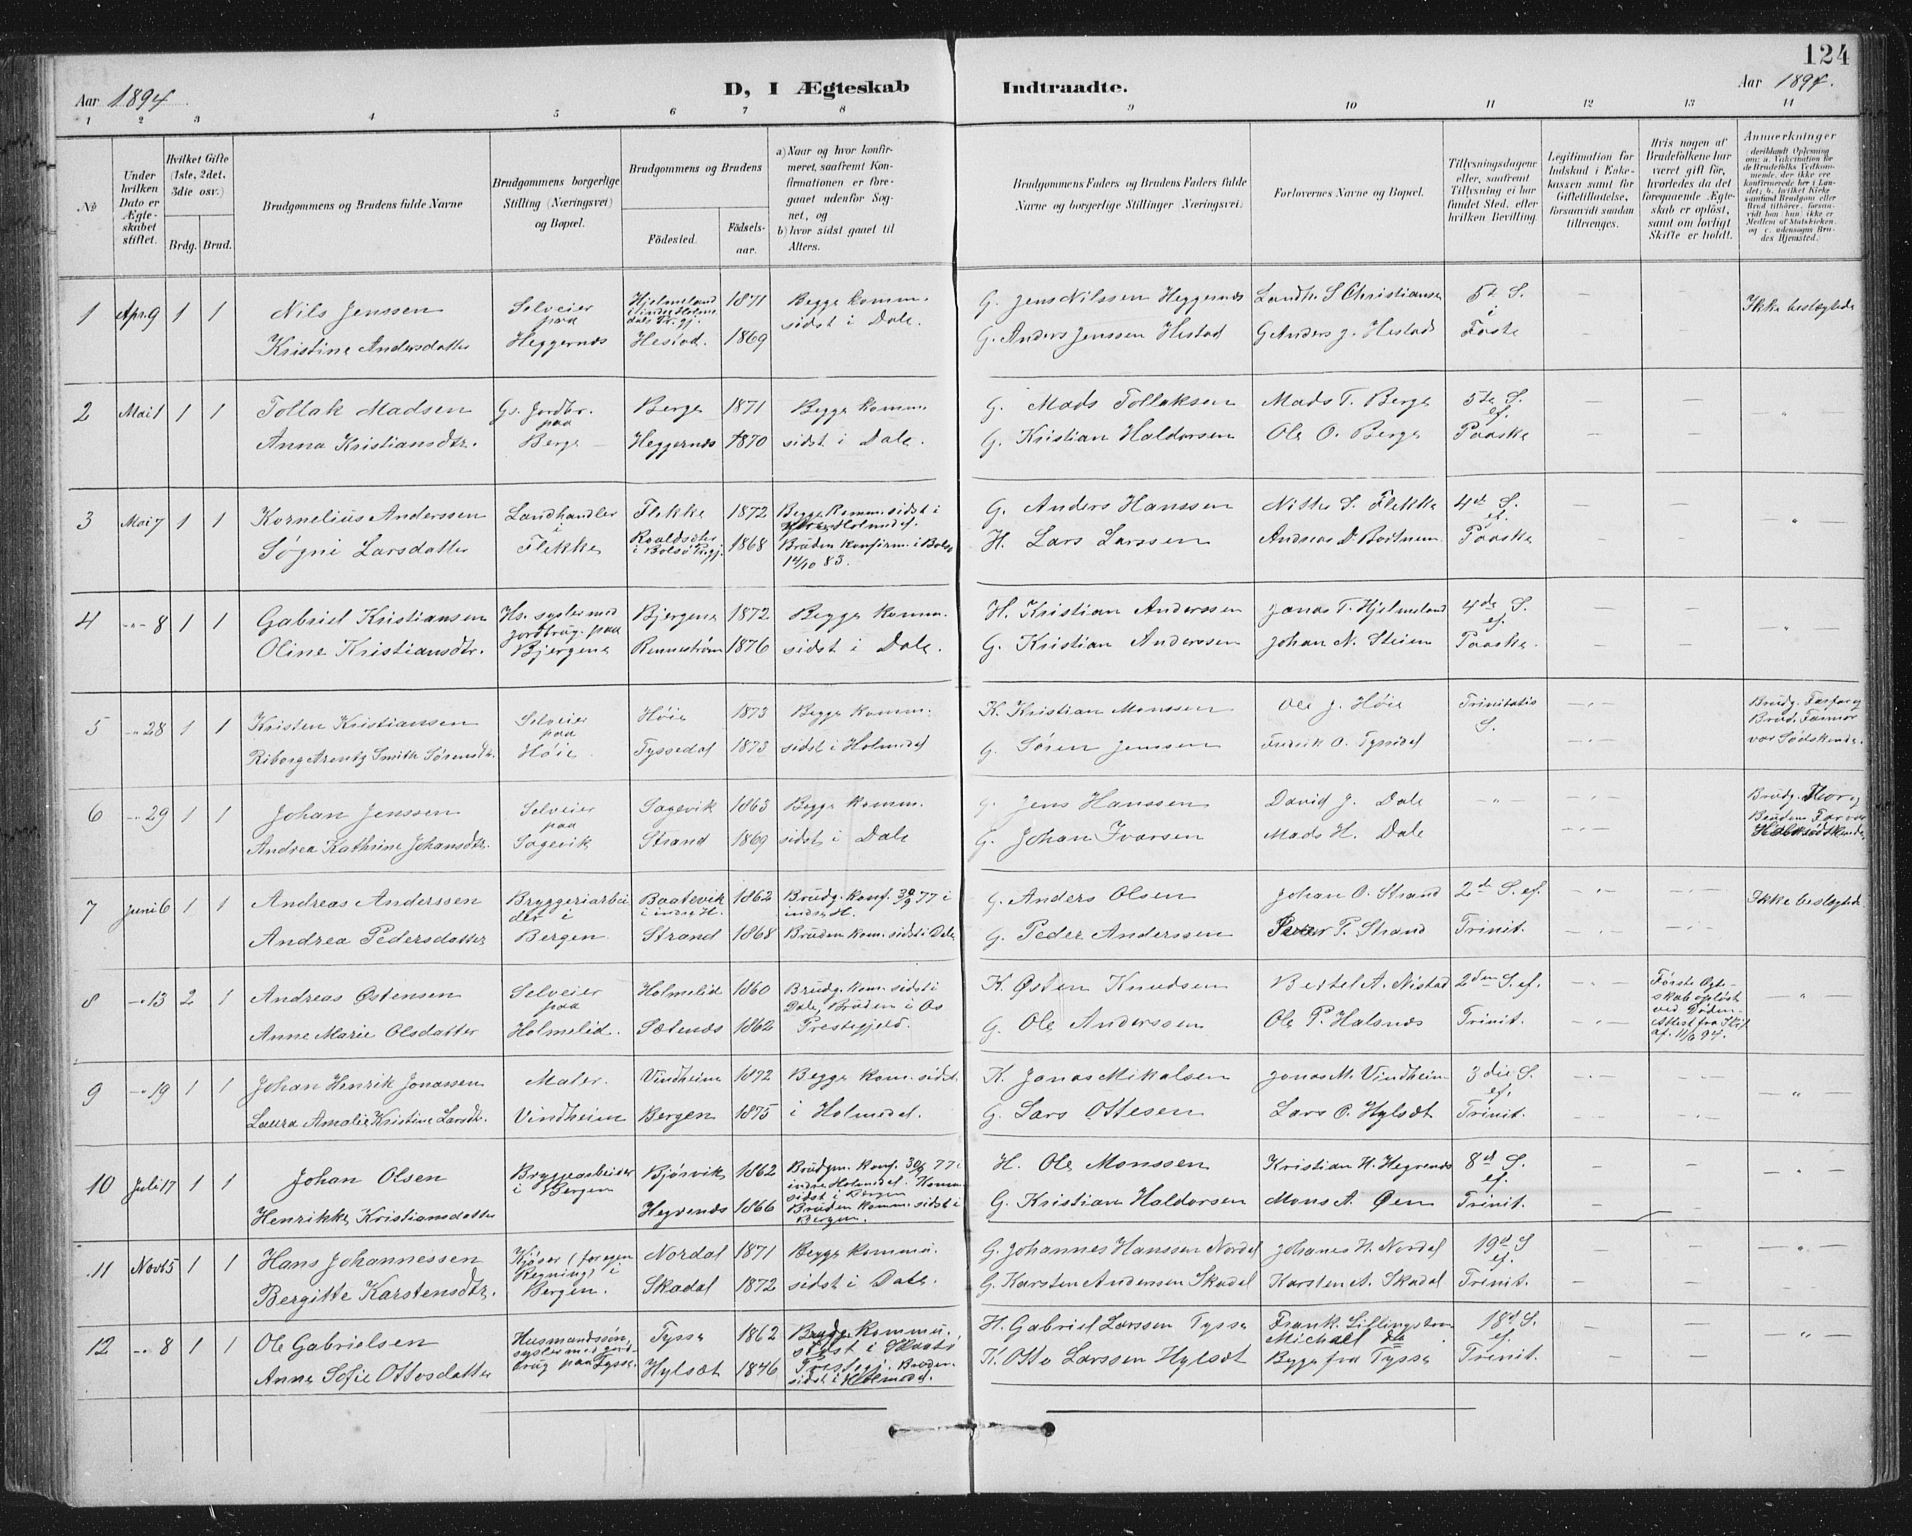 124
Aar 1894
D, I Ægteskab Indtraadte.
Aar 1894.
1 2 3 4 5 6 7 8 9 10 11 12 13 14
№
Under hvilken Dato er Ægteskabet stiftet.
Hvilket Gifte (1ste, 2det, 3die osv.)
Brdg. Brud.
Brudgommens og Brudens fulde Navne
Brudgommens borgerlige Stilling (Næringsvei) og Bopæl.
Brudgommens og Brudens
Födested.
Födselsaar.
a) Naar og hvor konfirmeret, saafremt Konfirmationen er foregaaet udenfor Sognet, og
b) hvor sidst gaaet til Alters.
Brudgommens Faders og Brudens Faders fulde Navne og borgerlige Stillinger (Næringsvei)
Forlovernes Navne og Bopæl.
Tillysningsdagene eller, saafremt Tillysning ei har fundet Sted, efter hvilken Bevilling.
Legitimation for Indskud i Enkekassen samt for Giftetilladelse, forsaavidt saadan tiltrænges.
Hvis nogen af Brudefolkene har været gift før, hvorledes da det foregaaende Ægteskab er opløst, samt om lovligt Skifte er holdt.
Anmerkninger
1 Apr. 9 1 1 Nils Jenssen Selveier paa Hjelmeland 1871 Begge komm. G. Jens Nilssen Heggernæs Landh. S Christiansen 5te S. i Ikke beslægtede
Kristine Andersdatter Heggernæs Hestad. 1869 sidst i Dale. G. Anders Jenssen Hestad G Anders J. Hestad Faste
2 Mai 1 1 1 Tollak Madsen Gs. Jordbr. paa Berge 1871 Begge komm. G. Mads Tollaksen Mads T. Berge 5te S. ef.
Anna Kristiansdtr. Berge Heggernæs 1870 sidst i Dale. G. Kristian Haldorsen Ole O. Berge Paaske
3 Mai 7 1 1 Kornelius Anderssen Landhandler i Flekke 1872 Begge Komm. sidst i Holmedal. G. Anders Hanssen S. Flekke 4de S. ef.
Søgni Larsdatter Flekke i Bolsø Prgj. 1868 Bruden konfirm. i Bolsø 14/10 83. H. Lars Larssen Andreas D. Paaske
4 -"- 8 1 1 Gabriel Kristiansen Hs. sysler med jordbrug paa Bjergene 1872 Begge komm. H. Kristian Anderssen Jonas T. Hjelmeland 4de S. ef.
Oline Kristiansdtr. Bjergene Rennestrøm 1876 sidst i Dale. G. Kristian Anderssen Johan N. Steien Paaske.
5 -"- 28 1 1 Kristen Kristiansen Selveier paa Høie 1873 Begge komm. K. Kristian Monssen Ole J. Høie Trinitatis S. Brudg. Farfar og
Riborg Arentz Smith Sørensdtr. Høie Tyssedal 1873 sidst i Holmedal G. Søren Jenssen Fredrik O. Tyssedal Brud. Farmor var Södskende.
6 -"- 29 1 1 Johan Jenssen Selveier paa Sagevik 1863 Begge komm. G. Jens Hanssen David J. Dale -"- Brudg. Mor og
Andrea Kathrine Johansdtr. Sagevik Strand 1869 sidst i Dale G. Johan Ivarsen Mads H. Dale Brudens Far var Halvsødskende
7 Juni 6 1 1 Andreas Anderssen Bryggeriarbeider i Baatevik i indre H. 1862 Brudg. konf. 30/9 77 i indre H. G. Anders Olsen Johan O. Strand 2de S. ef. Ikke beslægtede
Andrea Pedersdatter Bergen Strand 1868 Bruden kom. sidst i Dale G. Peder Anderssen Peder P. Strand Trinit.
8 -"- 13 2 1 Andreas Østensen Selveier paa Holmelid 1860 Brudg. kom. sidst i Dale, Bruden i Os K. Østen Knudsen Bertel A. Nistad 2den S. ef. Første Ægteskab opløst ved Døden. Attest fra Skif. af 11/6 94.
Anne Marie Olsdatter Holmelid. Sætenæs 1862 Prestegjeld. G. Ole Anderssen Ole P. Halsnæs Trinit.
9 -"- 19 1 1 Johan Henrik Jonassen Maler. Vindheim 1872 Begge kom. sidst K. Jonas Mikalsen Jonas M. Vindheim 3die S. ef.
Laura Amalie Kristine Larsdtr. Vindheim Bergen 1875 i Holmedal. G. Lars Ottesen Lars O. Hylsæt Trinit.
10 Juli 17 1 1 Johan Olsen Bryggearbeider i Bergen Bjørvik 1862 Brudgm. konf. 30/9 77 i indre Holmedal. Komm. sidst i Bergen H. Ole Monssen Kristian H. Hegrenæs 8de S. ef.
Henrikke Kristiansdatter Hegrenæs 1866 Bruden komm. sidst i Bergen. G. Kristian Haldorsen Mons A. Øen Trinit.
11 Novb 5 1 1 Hans Johannessen Kjører (for egen Regning) i Nordal 1871 Begge kommu. G. Johannes Hanssen Nordal Johanes H. Nordal 19de S ef.
Bergitte Karstensdtr. Bergen. Skadal 1872 sidst i Dale. G. Karsten Andersen Skadal Karsten A. Skadal Trinit.
12 -"- 8 1 1 Ole Gabrielsen Husmandssøn, sysler med jordbrug paa Tysse. Tysse 1862 Brudg. kommu. sidst i H. Gabriel Larssen Tysse Frank Lillingston 18de S. ef.
Anne Sofie Ottosdatter Hylsæt 1846 Prestegj. Bruden sidst i Holmedal. K. Otto Larssen Hylsæt Michael do Begge fra Tysse Trinit.